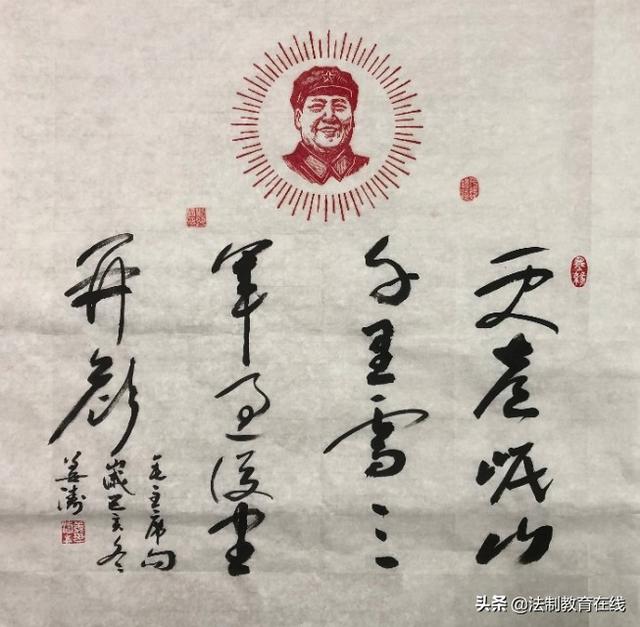 更喜岷山
千里雪三
軍过後尽
開颜
毛主席句
歲己亥冬
善濤
头条 @法制教育在线